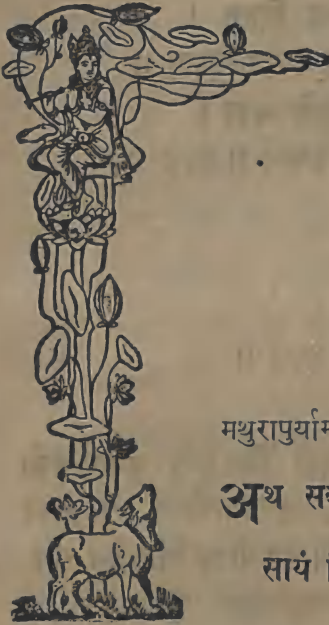 मथुरापुर्याम
अथ स
सायं